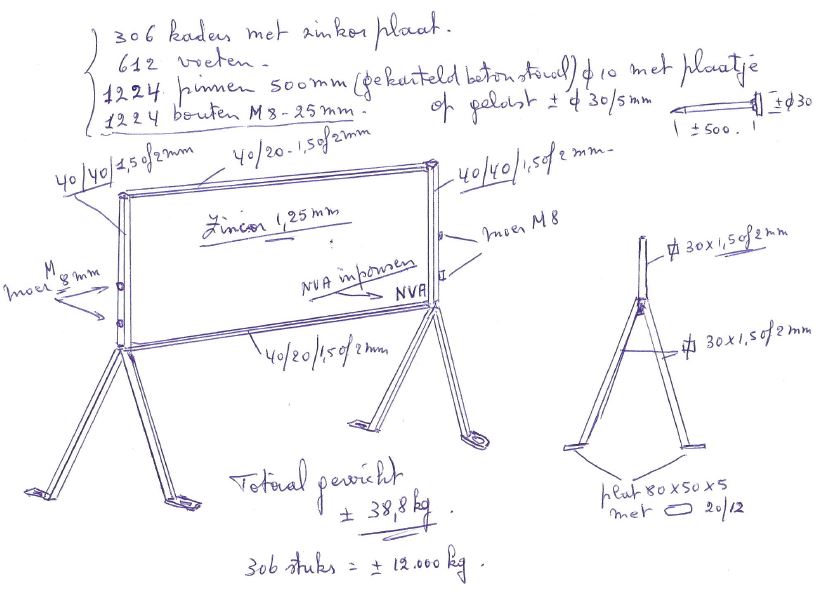 306 kaders met zinkor plaat.
612 voeten.
1224 pinnen 500mm (gekarteld betonstaal) ϕ10 met plaatje
op gelast ± ϕ 30/5mm
1224 bouten M8-25mm.
±ϕ30
±500.
40/40/1,5 of 2mm
40/20-1,5 of 2mm
40/40/1,5 of 2mm-
Zincor 1,25mm
moer M8
M
moer 8mm
NVA inponsen
NVA
40/20/1,5 of 2mm
30x1,5 of 2mm
30x1,5 of 2mm
Totaal gewicht
± 38,8kg.
plat 80x50x5
met 20/12
306 stuks = ± 12.000kg.